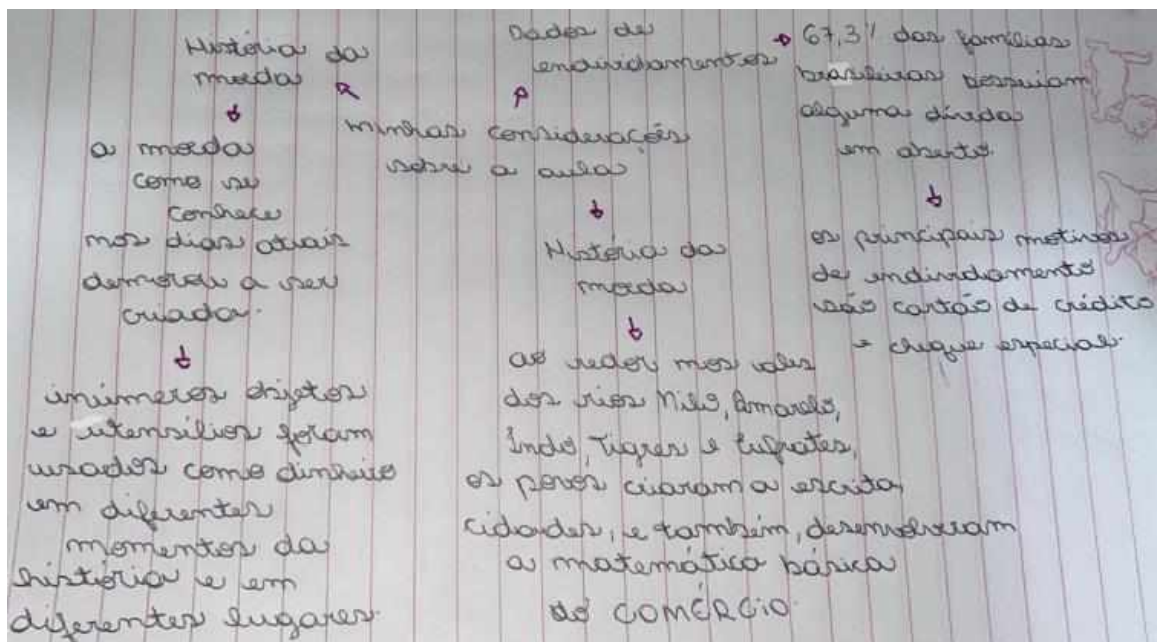 História da
moeda
a moeda
como se
conhece
nos dias atuais
demorou a ser
criada.
inúmeros objetos
e utensílios foram
usados como dinheiro
em diferentes
momentos da
história e em
diferentes lugares.
Dados de
endividamentos
minhas considerações
sobre a aula
História da
moeda
ao redor nos vales
dos rios Nilo, Amarelo,
Indo, Tigres e Eufrates,
os povos criaram a escrita,
cidades, e também, desenvolveram
a matemática básica
do COMÉRCIO.
67,3% das famílias
brasileiras possuiam
alguma dívida
em aberto.
os principais motivos
de endividamento
são cartão de crédito
e cheque especial.